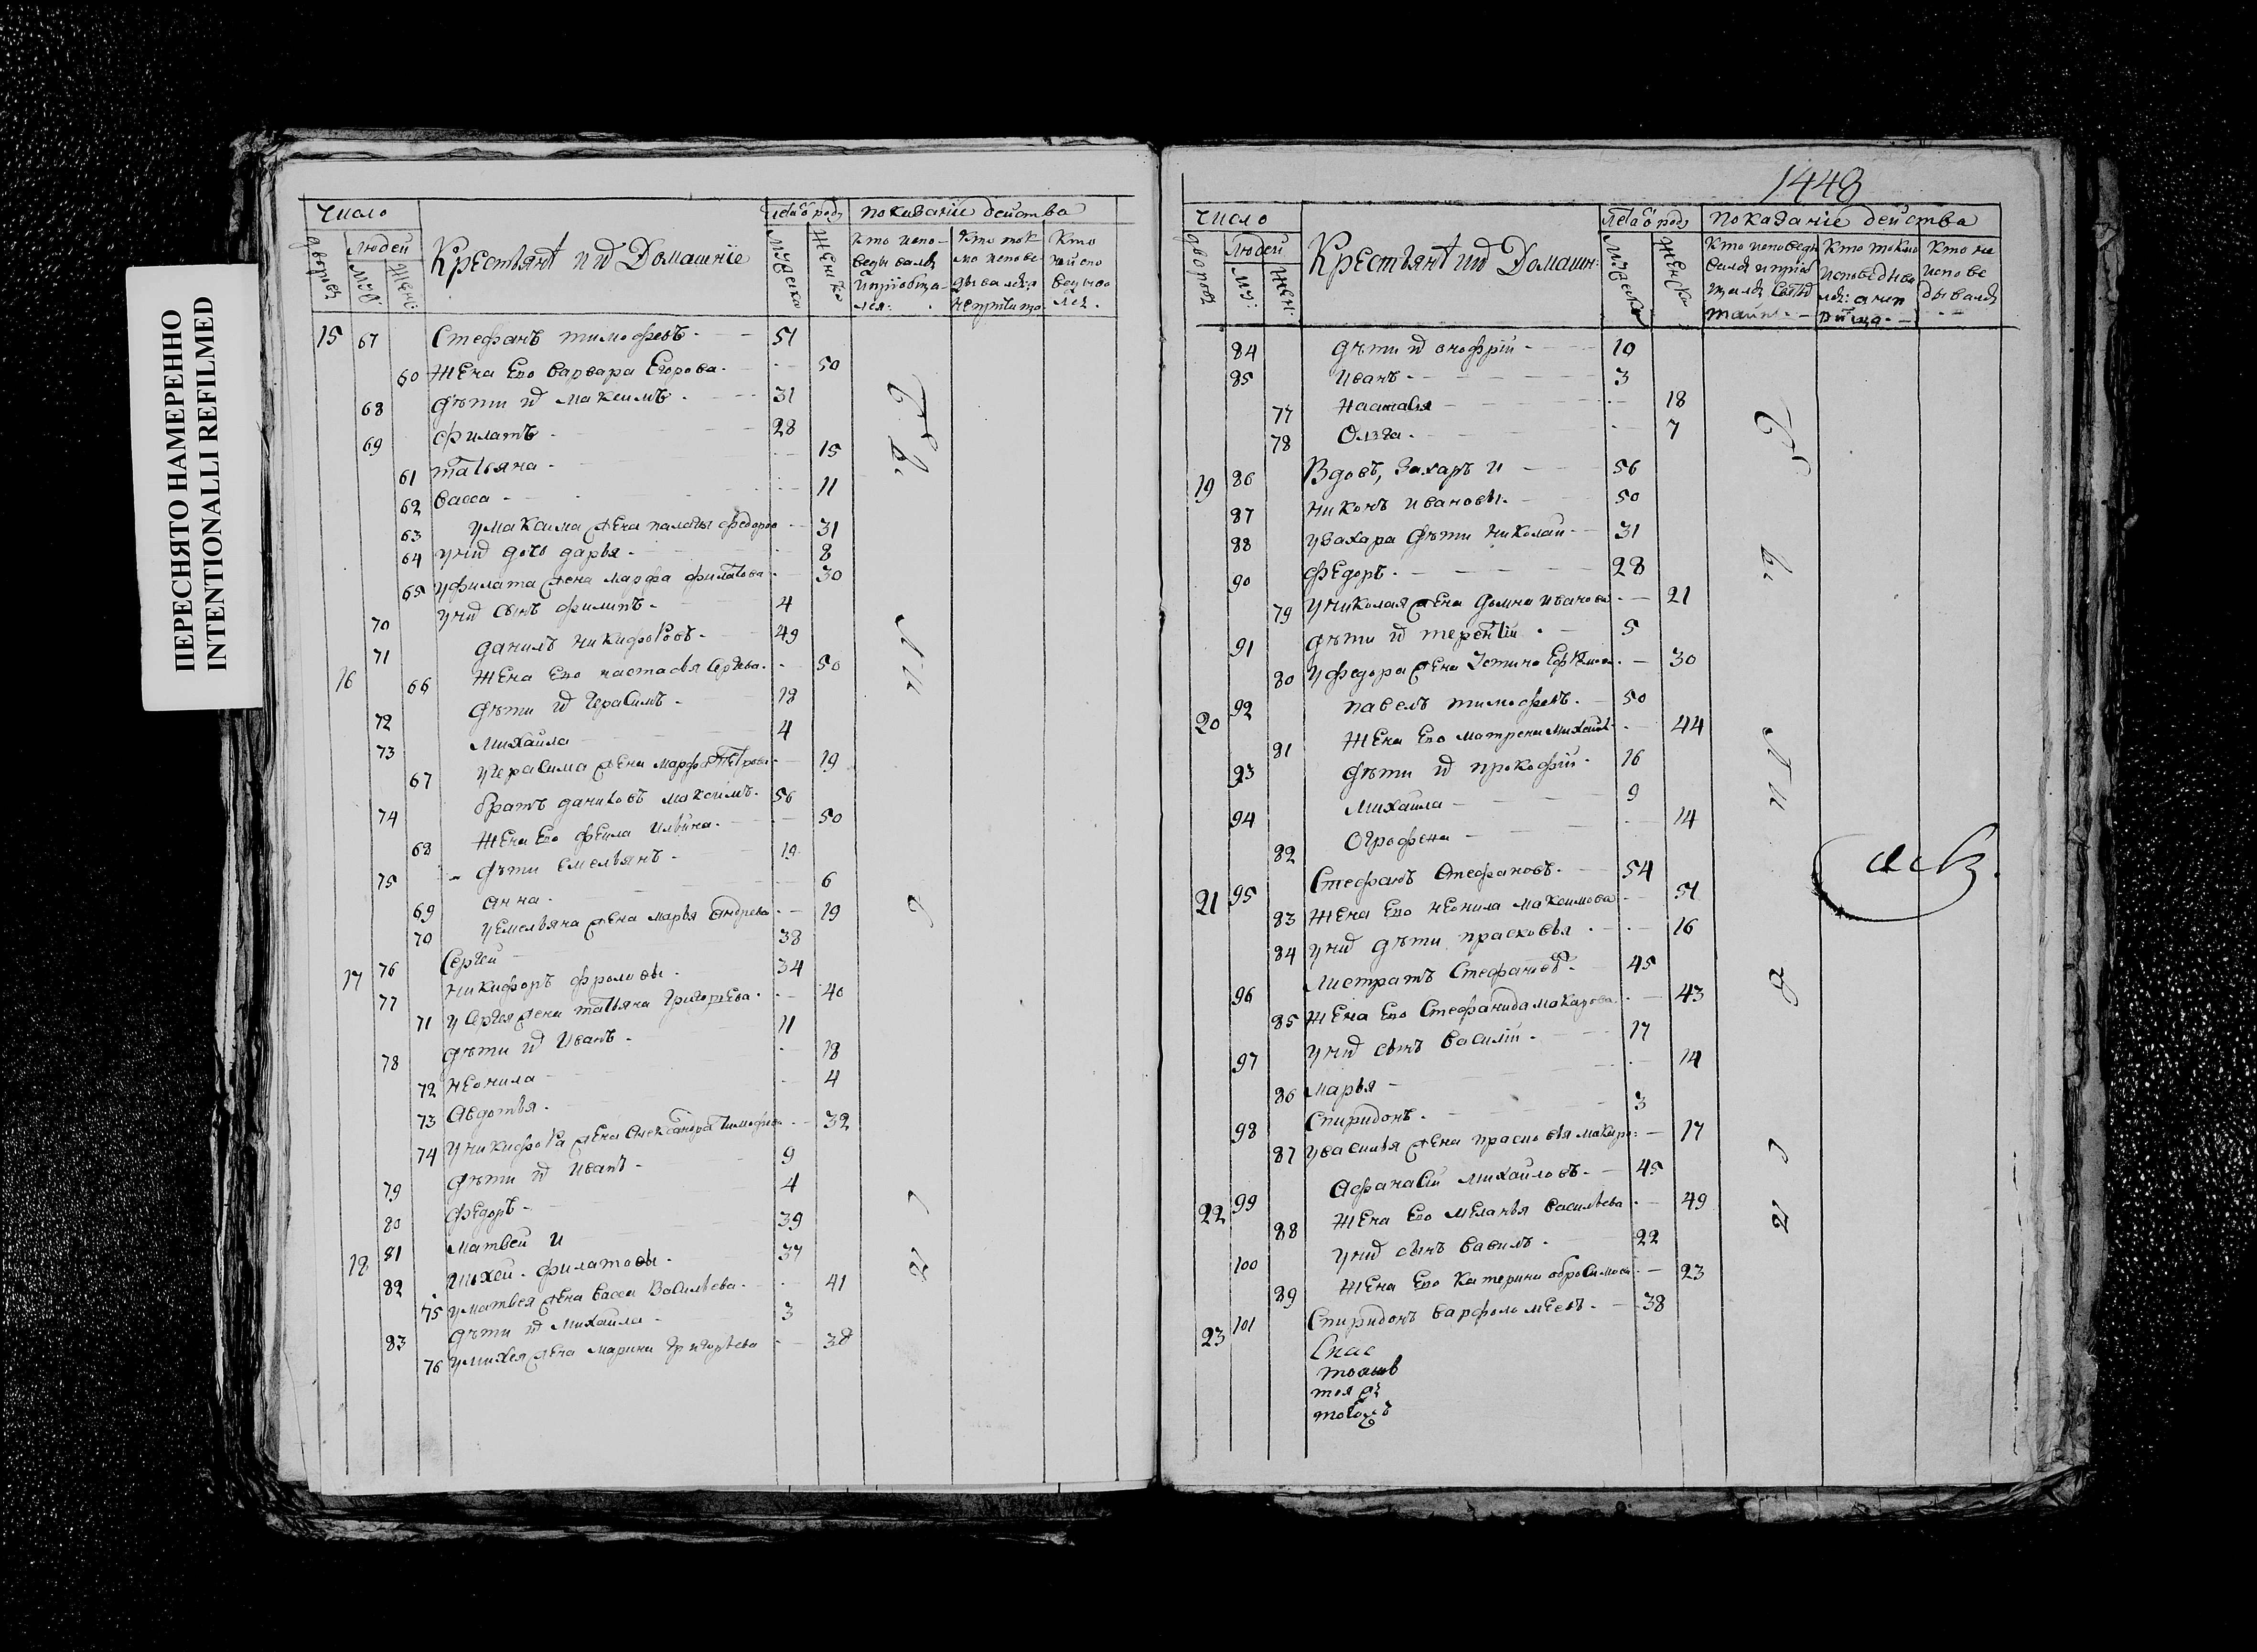 ПЕРЕСНЯТО НАМЕРЕННО
INTENTIONALLI REFILMED
число
лета ѿ роду
показаніе действа
дворовъ
людей
муж:
женс:
Крестьянѣ и ихъ Домашніе
мужеска
женска
кто испо-
ведывался
и приобща-
лся:
кто ток
мо испове
дывался а
не приобща
кто
не испо
ведыва
лся.
15 67 Стефанъ тимофеевъ 51
60 жена его варвара Егорова 50
68 дѣти их максимъ 31
69 филатъ 28
61 татьяна 15
62 васса 11
63 у максима жена палагея федорова 31
64 у них дочь дарья 8
65 у филата жена марфа филатова 30
70 у них сынъ филипъ 4
71 данилъ никифоровъ 49
16 66 жена его настасья Сергева 50
72 дѣти их герасимъ 18
73 михаила 4
67 у герасима жена марфа Петрова 19
74 братъ даниловъ максимъ 56
68 жена его фекла ильина 50
75 дѣти емельянъ 19
69 анна 6
70 у емельяна жена марья андреева 19
17 76 Сергей 38
77 никифоръ фроловы 34
71 у Сергея жена татьяна григорьева 40
78 дѣти их Иванъ 11
72 неонила 18
73 авдотья 4
74 у никифора жена александра тимофеева 32
79 дѣти их иванъ 9
80 федоръ 4
18 81 матвеи и 39
82 михеи филатовы 37
75 у матвея жена васса Васильева 41
83 дѣти их михаила 3
76 у михея жена марина григорьева 38
1448
число
лета ѿ роду
показаніе действа
дворовъ
людей
муж:
жен:
Крестьянѣ и их Домашн:
мужеска
женска
кто токмо
кто не
испове
дывался
84 дѣти их онофрій 10
85 иванъ 3
77 настасья 18
78 олга 7
19 86 Вдовъ, захаръ и 56
87 никонъ ивановы 50
88 у захара дѣти николаи 31
90 федоръ 28
79 у николая жена домна иванова 21
91 дѣти их терентіи 5
80 у федора жена Устина Ефимова 30
20 92 павелъ тимофеевъ 50
81 жена его матрена михаилова 44
93 дѣти их прокофіи 16
94 михаила 9
82 Ографена 14
21 95 Стефанъ Стефановъ 54
83 жена его неонила максимова 51
84 у них дѣти прасковья 16
96 листратъ Стефановъ 45
85 жена его Стефанида макарова 43
97 у них сынъ василіи 17
86 марья 14
98 Спиридонъ 3
87 у василья жена прасковья макаро: 17
22 99 афанасіи михаиловъ 45
88 жена его меланья васильева 49
100 у них сынъ василъ 22
89 жена его катерина 23
23 101 Спиридонъ варфоломеевъ 38